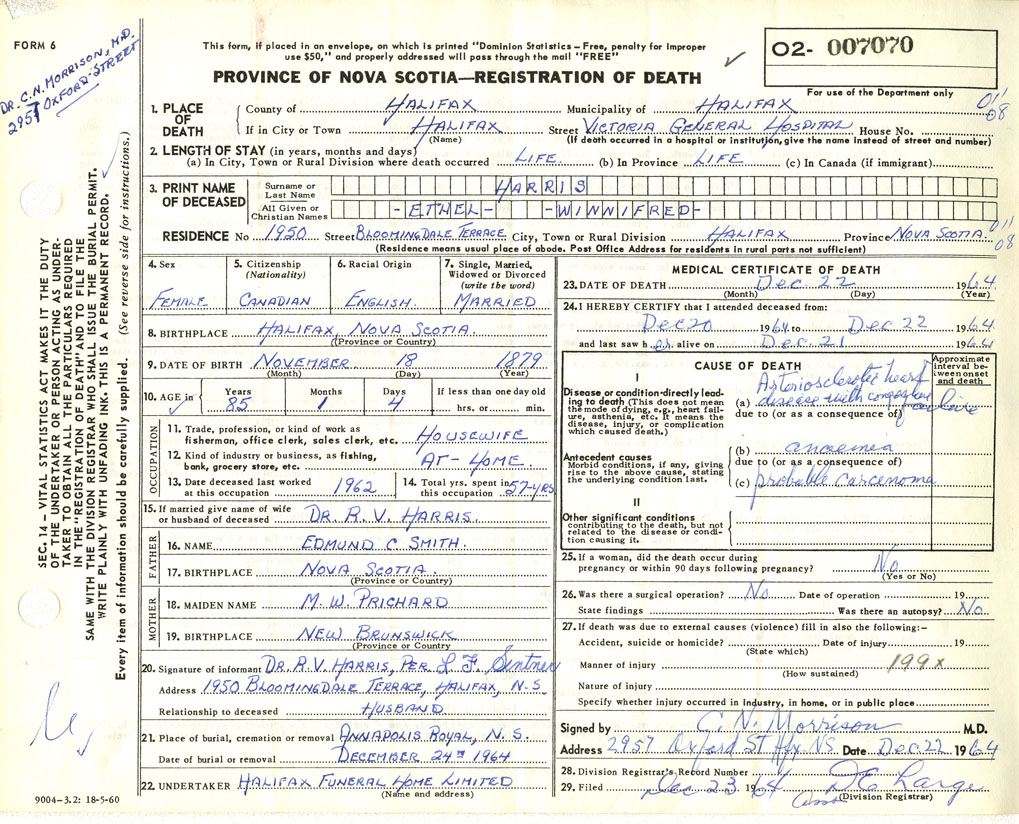 FORM 6
DR. C.N. MORRISON, M.D.
2957 OXFORD STREET
This form, if placed in an envelope, on which is printed "Dominion Statistics – Free, penalty for improper
use $50," and properly addressed will pass through the mail "FREE"
PROVINCE OF NOVA SCOTIA—REGISTRATION OF DEATH
02- 007070
For use of the Department only
1. PLACE OF DEATH
County of HALIFAX Municipality of HALIFAX 011 08
If in City or Town HALIFAX Street VICTORIA GENERAL HOSPITAL House No.
(Name) (If death occurred in a hospital or institution, give the name instead of street and number)
2. LENGTH OF STAY (in years, months and days)
(a) In City, Town or Rural Division where death occurred LIFE. (b) In Province LIFE. (c) In Canada (if immigrant)
3. PRINT NAME OF DECEASED
Surname or Last Name HARRIS
All Given or Christian Names -ETHEL- -WINNIFRED-
RESIDENCE No 1950 Street BLOOMINGDALE TERRACE City, Town or Rural Division HALIFAX Province NOVA SCOTIA 011 08
(Residence means usual place of abode. Post Office Address for residents in rural parts not sufficient)
SEC. 14 – VITAL STATISTICS ACT MAKES IT THE DUTY
OF THE UNDERTAKER OR PERSON ACTING AS UNDER-
TAKER TO OBTAIN ALL THE PARTICULARS REQUIRED
IN THE "REGISTRATION OF DEATH" AND TO FILE THE
SAME WITH THE DIVISION REGISTRAR WHO SHALL ISSUE THE BURIAL PERMIT.
WRITE PLAINLY WITH UNFADING INK. THIS IS A PERMANENT RECORD.
Every item of information should be carefully supplied. (See reverse side for instructions.)
4. Sex
FEMALE
5. Citizenship
(Nationality)
CANADIAN
6. Racial Origin
ENGLISH.
7. Single, Married,
Widowed or Divorced
(write the word)
MARRIED
8. BIRTHPLACE HALIFAX, NOVA SCOTIA.
(Province or Country)
9. DATE OF BIRTH NOVEMBER 18 1879
(Month) (Day) (Year)
10. AGE in Years 85 Months 1 Days 4 If less than one day old
hrs. or min.
OCCUPATION
11. Trade, profession, or kind of work as
fisherman, office clerk, sales clerk, etc. HOUSEWIFE
12. Kind of industry or business, as fishing,
bank, grocery store, etc. AT-HOME.
13. Date deceased last worked
at this occupation 1962
14. Total yrs. spent in
this occupation 57-YRS
15. If married give name of wife
or husband of deceased DR. R. V. HARRIS.
FATHER
16. NAME EDMUND C SMITH.
17. BIRTHPLACE NOVA SCOTIA.
(Province or Country)
MOTHER
18. MAIDEN NAME M. W. PRICHARD
19. BIRTHPLACE NEW BRUNSWICK
(Province or Country)
20. Signature of informant DR. R.V. HARRIS, PER L F.
Address 1950 BLOOMINGDALE TERRACE, HALIFAX, N-S
Relationship to deceased HUSBAND
21. Place of burial, cremation or removal ANNAPOLIS ROYAL, N. S.
Date of burial or removal DECEMBER 24TH 1964
22. UNDERTAKER HALIFAX FUNERAL HOME LIMITED
(Name and address)
9004-3.2: 18-5-60
MEDICAL CERTIFICATE OF DEATH
23. DATE OF DEATH Dec. 22 1964
(Month) (Day) (Year)
24. I HEREBY CERTIFY that I attended deceased from:
Dec 20 1964 to Dec 22 1964
and last saw her alive on Dec. 21 1964
CAUSE OF DEATH
Approximate
interval be-
tween onset
and death
I
Disease or condition directly lead-
ing to death (This does not mean
the mode of dying, e.g., heart fail-
ure, asthenia, etc. It means the
disease, injury, or complication
which caused death.)
Arteriosclerotic heart
(a) disease with congestive failure
due to (or as a consequence of)
Antecedent causes
Morbid conditions, if any, giving
rise to the above cause, stating
the underlying condition last.
(b) anaemia
due to (or as a consequence of)
(c) probable carcenoma
II
Other significant conditions
contributing to the death, but not
related to the disease or condi-
tion causing it.
25. If a woman, did the death occur during
pregnancy or within 90 days following pregnancy? No
(Yes or No)
26. Was there a surgical operation? No Date of operation 19
State findings Was there an autopsy? No
27. If death was due to external causes (violence) fill in also the following:–
Accident, suicide or homicide? Date of injury 19
(State which)
Manner of injury 199x
(How sustained)
Nature of injury
Specify whether injury occurred in industry, in home, or in public place
Signed by C. N. Morrison M.D.
Address 2957 Oxford St Hfx NS Date Dec. 22 1964
28. Division Registrar's Record Number
29. Filed Dec 23 1964 Large
(Division Registrar)